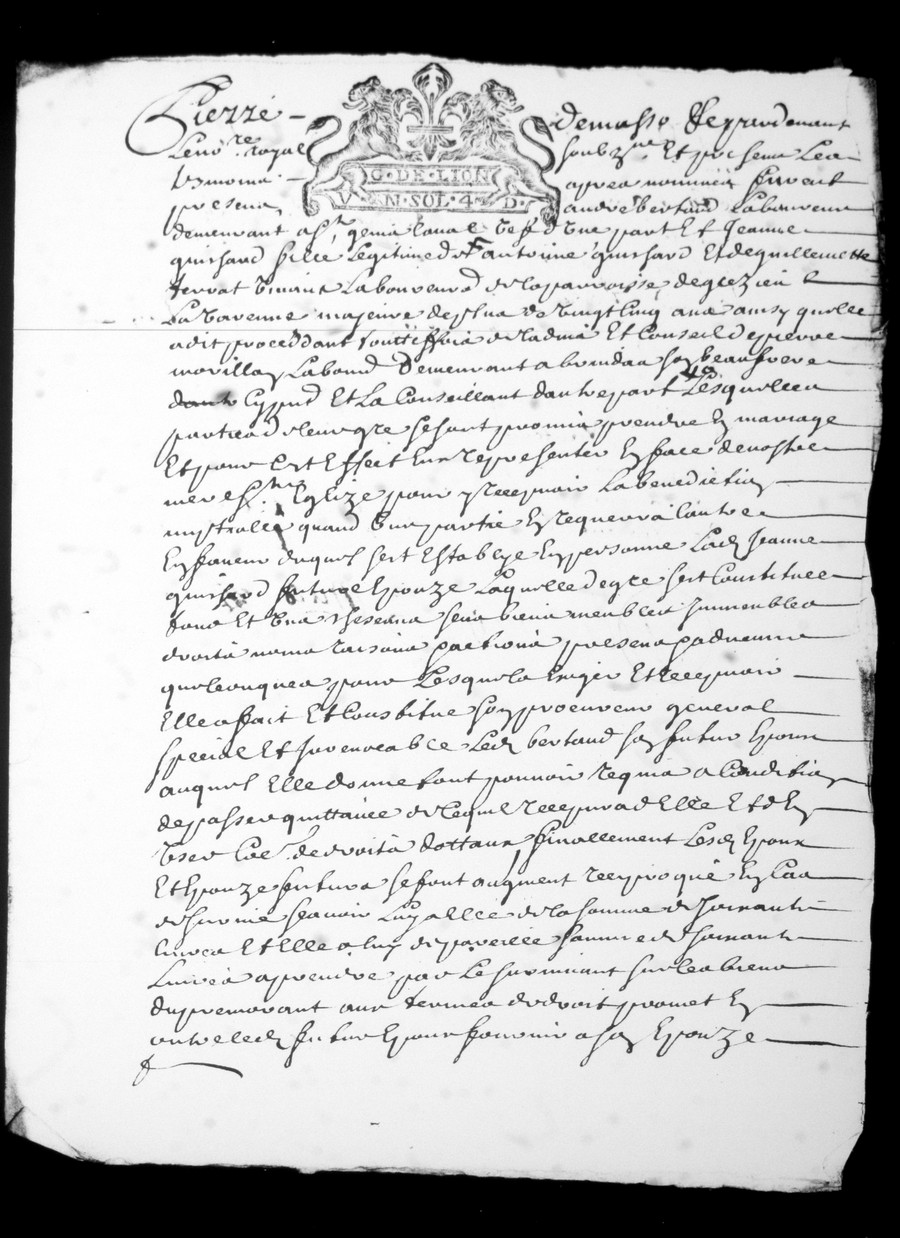 Pierre demasso Pardevant
Le no.re royal soubz.ne Et presens Les
tesmoins apres nommés furent
G·DE·LION
V·N·SOL·4·D·
presens andre bertand Laboureur
demeurant a St genis Laval d'une part Et Jeanne
quissard fille Legitime de ff antoine quissard Et de guillemette
terrat vivants Laboureurs de la parroisse de grezieu
La Varenne majeure de plus de vingt cinq ans ainsy quelle
a dit procedant touttesfois de Ladvis Et Conseil de pierre
Labour demeurant a brindas son beau frere
Cy present Et La Conseillant dautre part Lesquelles
parties de leur gre se sont promis prendre En mariage
Et pour Cet Effect Eux representer En face de nostre
mere Ste Eglize pour y Recepvoir La benediction
nuptialle quand Une partie En requerra Lautre
En faveur duquel sest Establye En personne Lad. Jeanne
quissard future Espouze Laquelle de gre sest Constituee
tous Et Uns chescuns ses biens meubles Immeubles
droits noms raisons pactions presens padvenir
quelconques pour Lesquels Exiger Et Recepvoir
Elle a fait Et Constitue son procureur general
special Et Irrevocable Led. bertand son futur Espoux
auquel Elle donne tout pouvoir requis a Condition
de passer quittance de Ce quil recepvra delle Et d'En
User Co.e de droits dottaux finallement Lesd. Espoux
Et Espouze futurs se font augment reciproque En Cas
de survie scavoir Luy a Elle de la somme de soixante
Livres Et Elle a Luy de pareille somme de soixante
Livres a prendre par Le survivant sur les biens
du premourant aux termes de droit promet En
outre led. futur Espoux fournir a son Espouze